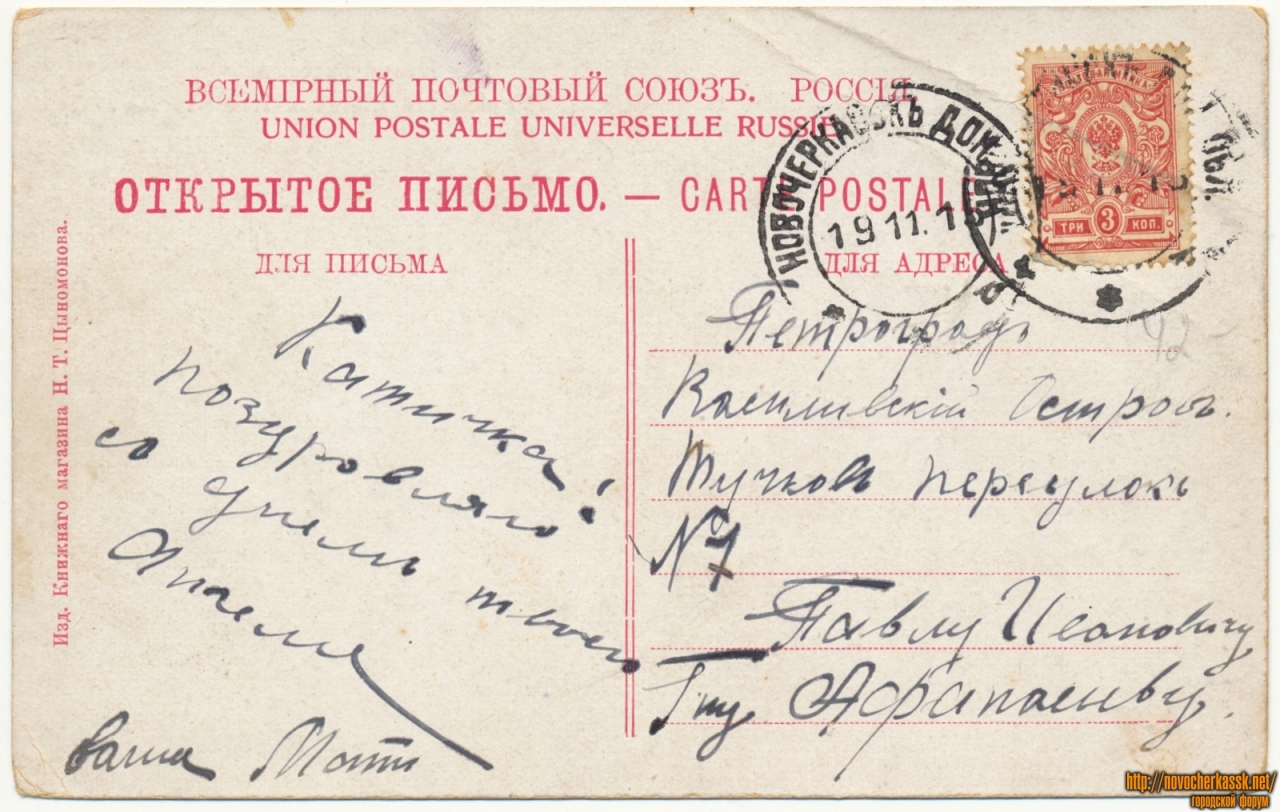 ВСЕМІРНЫЙ ПОЧТОВЫЙ СОЮЗЪ. РОССІЯ.
UNION POSTALE UNIVERSELLE RUSSIE
ОТКРЫТОЕ ПИСЬМО. — CARTE POSTALE
ДЛЯ ПИСЬМА
ДЛЯ АДРЕСА
НОВОЧЕРКАССКЪ ДОН.
19 11. 15
ТРИ 3 КОП.
Изд. Книжнаго магазина Н. Т. Цыномонова.
Катичка!
поздровляю
со днемъ твоего
Ангела
ваша Мотя
Петроградъ
Василивскій Островъ.
Тучковъ переулокъ
N 7
Павлу Ивановичу
Гну Афанасьеву.
42-
http://novocherkassk.net/
городской форум